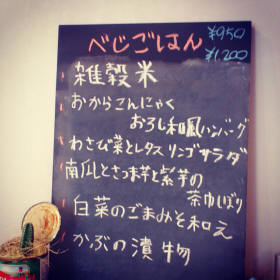 べじごはん
¥950
¥1,200
雑穀米
おからこんにゃく
おろし和風ハンバーグ
わさび菜とレタス リンゴサラダ
南瓜とさつま芋と紫芋の
茶巾しぼり
白菜のごまみそ和え
かぶの漬物